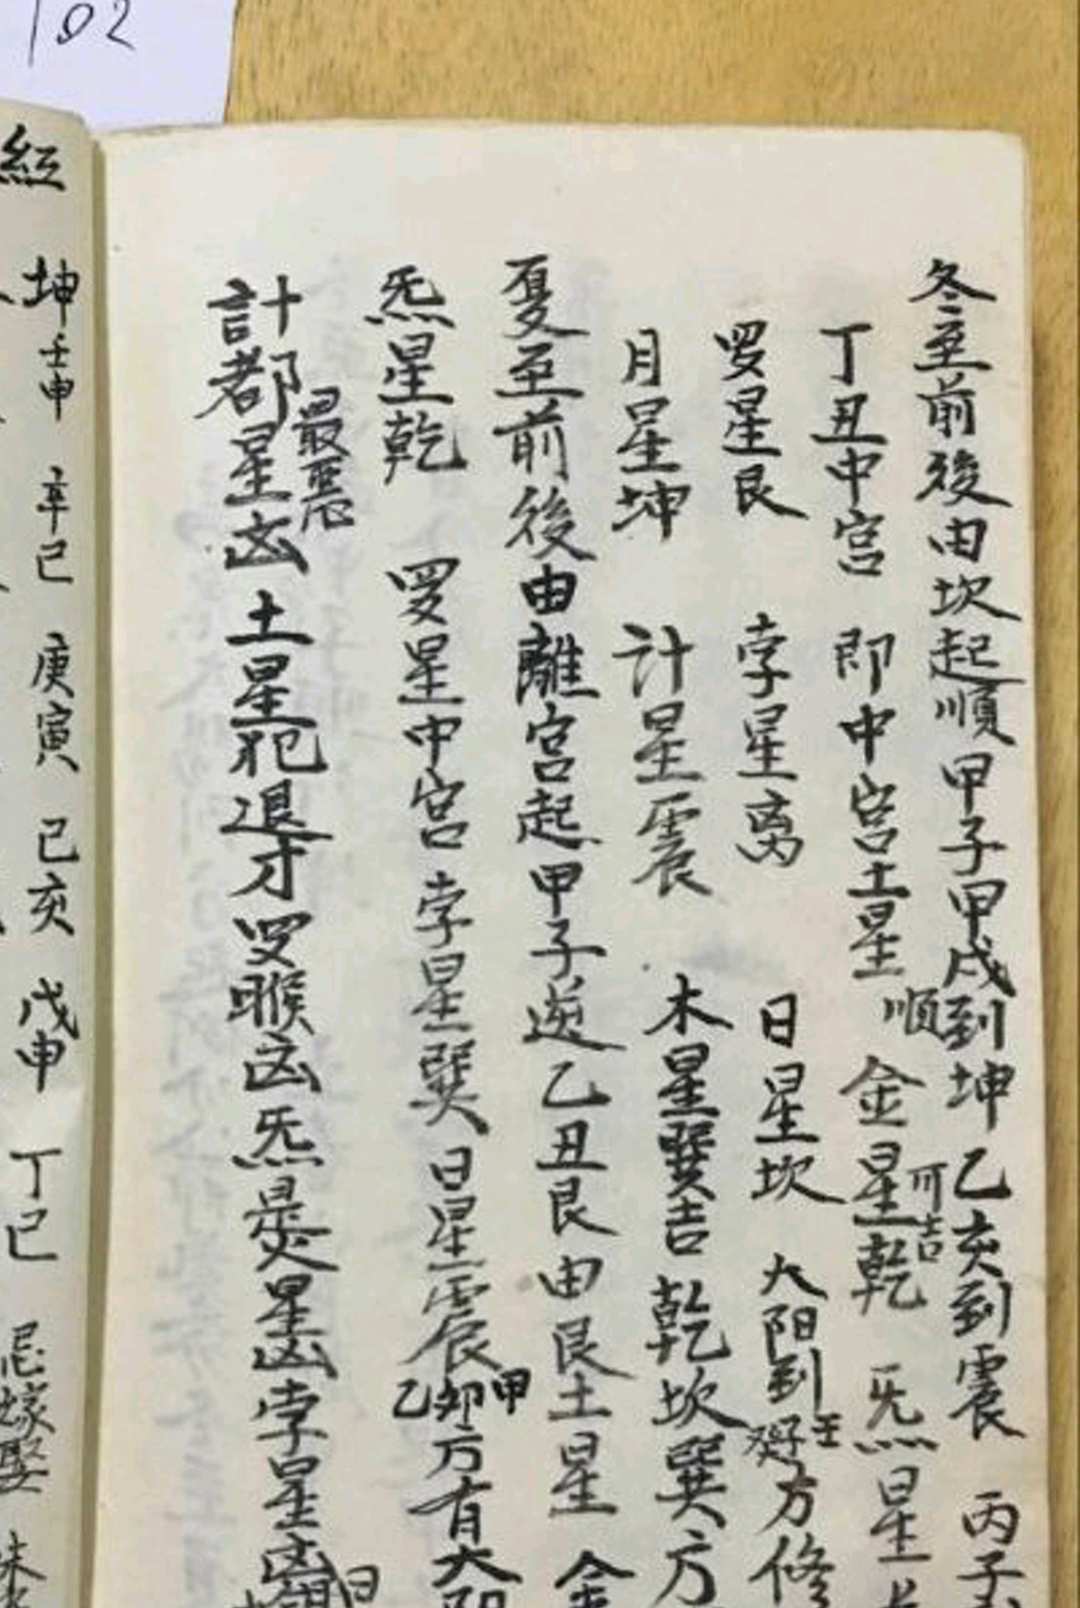 102
冬至前後由坎起順甲子甲戌到坤乙亥到震 丙子
順
可吉
丁丑中宫 即中宫土星 金星乾 炁星
罗星艮 孛星离 日星坎 大阳到
方修
月星坤 計星震 木星巽吉 乾坎巽方
夏至前後由離宮起甲子逆乙丑艮由艮土星 金
炁星乾 罗星中宫 孛星巽 日星震
甲
乙
方有大阳
最惡
計都星凶 土星犯退才 罗睺凶 炁星凶 孛星凶
經
坤 壬申 辛巳 庚寅 己亥 戊申 丁巳 忌嫁娶